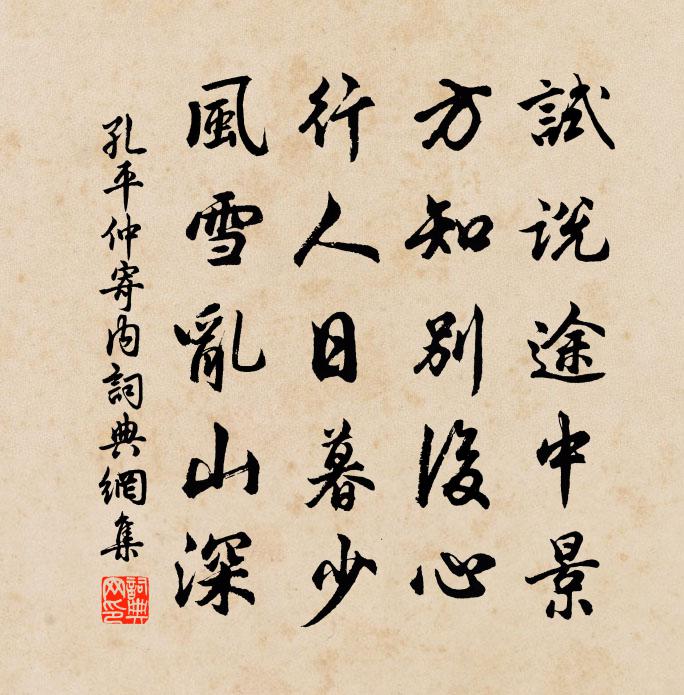 試説途中景
方知别後心
行人日暮少
風雪亂山深
孔平仲寄内詞典網集
詞典
网印